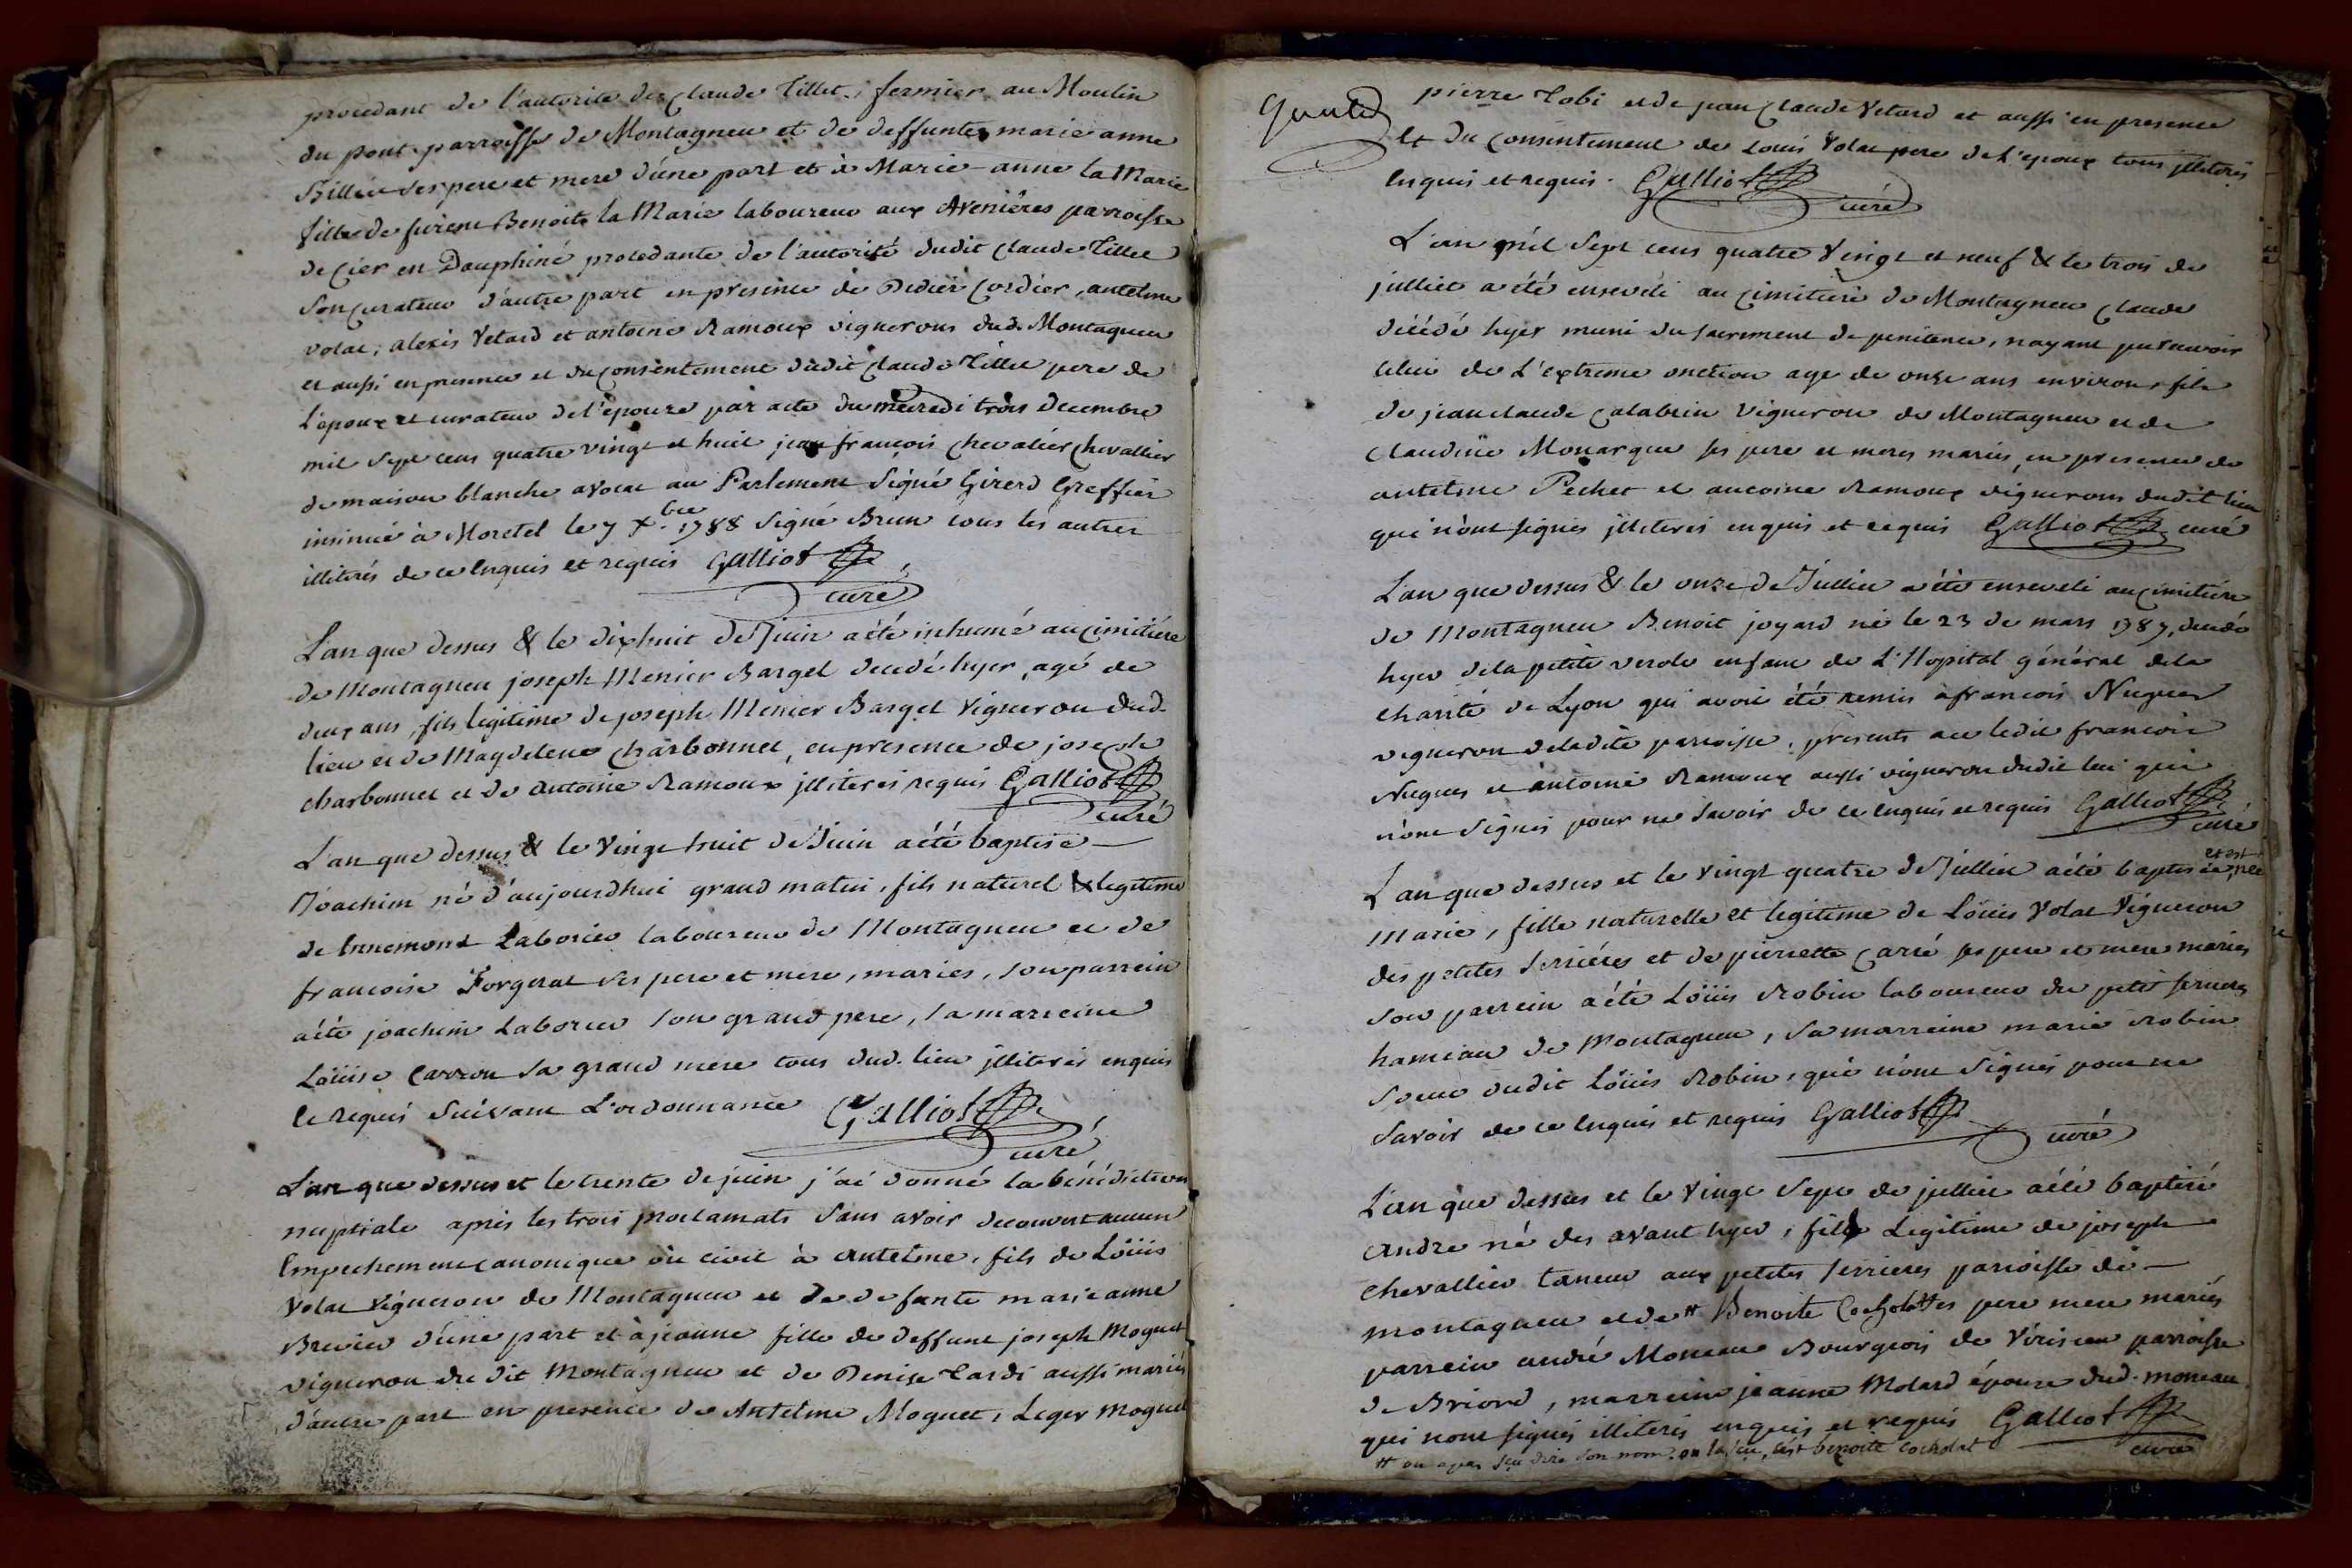 procedant de l'autorité de Claude Tillet, fermier au Moulin
du pont parroisse de Montagneu et de deffunte marie anne
Billieu ses pere et mere d'une part et à Marie-anne la Marie
fille de Benoit la Marie laboureur aux Avenieres parroisse
de Cier en Dauphiné procedante de l'autorité dudit Claude Tillet
son curateur d'autre part en presence de Didier Cordier, antelme
volat, alexis Vetard et antoine Ramoux vignerons dud. Montagneu
et aussi en presence et du consentement dudit Claude Tillet pere de
l'epoux et curateur de l'epouse par acte du mecredi trois decembre
mil sept cens quatre vingt et huit jean françois chevalier chevallier
de maison blanche avocat au Parlement Signé Girerd Greffier
insinué à Morestel le 7 Xbre 1788 Signé Brun tous les autres
illiterés de ce enquis et requis Galliot
curé
L'an que dessus & le dixhuit de Juin a été inhumé au cimitiére
de Montagneu joseph Menier Bargel decedé hyer, agé de
deux ans, fils legitime de joseph Menier Bargel Vigneron dud.
lieu et de Magdelene Charbonnet, en presence de joseph
charbonnet et de Antoine Ramoux jlliterés requis Galliot
curé
L'an que dessus & le vingt huit de Juin a été baptisé
Joachim né d'aujourdhui grand matin, fils naturel & legitime
de Ennemond Laborier laboureur de Montagneu et de
francoise Forgerat ses pere et mere, mariés, son parrein
a été joachim Laborier son grand pere, sa marreine
Löuise Carron sa grand mere tous dud. lieu jlliterés enquis
et requis Suivant L'ordonnance Galliot
curé
L'an que dessus et le trente de juin j'ai donné la bénédiction
nuptiale après les trois proclamats sans avoir decouvert aucun
Empechement canonique où civil à antelme, fils de Löuis
Volat Vigneron de Montagneu et de defunte marie anne
Brevier d'une part et à jeanne fille de deffunt joseph Moguet
vigneron du dit Montagneu et de Denise Tardi aussi mariés
d'autre part en presence de Antelme Moguet, Leger Moguet
pierre Tobi et de jean Claude Vetard et aussi en presence
et du consentement de Louis Volat pere de L'epoux tous jlliterés
enquis et requis. Galliot
curé
L'an mil Sept cens quatre Vingt et neuf & le trois de
julliet a été enseveli au cimitiere de Montagneu Claude
décédé hyer muni du sacrement de penitence, nayant pu recevoir
celui de L'extreme onction agé de onze ans environ, fils
de jean claude Calabrin Vigneron de Montagneu et de
Claudine Monarque ses pere et meres mariés, en presence de
antelme Pechet et antoine Ramoux vignerons dudit lieu
qui n'ont signés jlliterés enquis et requis Galliot curé
L'an que dessus & le onze de Julliet a été enseveli au cimitiére
de Montagneu Benoit joyard né le 23 de mars 1787, decedé
hyer de la petite verole enfant de L'Hopital général de la
charité de Lyon qui avoit été remis à francois Nugues
vigneron de ladite parroisse, presents led ledit francois
Nugues et antoine Ramoux aussi vigneron dudit lieu qui
n'ont Signés pour ne savoir de ce enquis et requis Galliot
curé
L'an que dessus et le vingt quatre de Julliet a été baptisée, et est née
Marie, fille naturelle et legitime de Löuis Volat Vigneron
des petites Serriéres et de pierrette Carré ses pere et mere mariés
son parrein a été Löuis Robin laboureur du petit serrieres
hameau de Montagneu, sa marreine marie Robin
soeur dudit Löuis Robin, qui n'ont Signés pour ne
savoir de ce enquis et requis Galliot
curé
L'an que dessus et le Vingt Sept de julliet a été baptisé
andré né des avant hyer, fils Legitime de joseph
chevallier taneur aux petites Serrieres parroisse de
montagneu et de ++ Benoite Cocholat ses pere mere mariés
parrein andré Moneau Bourgeois de Vérizieu parroisse
de Briord, marreine jeanne Molard épouse dud. moneau
qui n'ont signés illiterés enquis et requis Galliot
curé
++ on a pas scu dire son nom, on la scu, c'est benoite cocholat